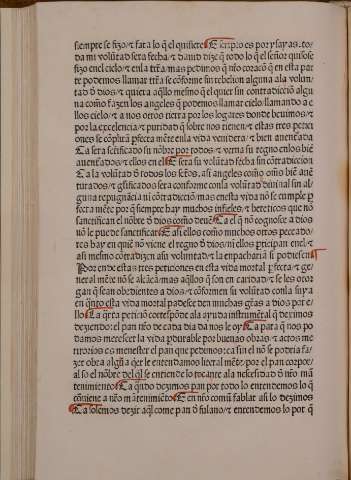 siempre se fizo: ⁊ fara lo q̃ el quisiere. E siempro es por y say as. to
da mi volũtad sera fecha: ⁊ dauid dize q̃ todo lo q̃ el señor quiso se
fizo en el cielo: ⁊ en la tr̃ra: mas pedimos q̃ nr̃o coraçõ q̃ en esta par
te podemos llamar tr̃ra se cõforme sin rebelion alguna a la volun
tad d̓ dios: ⁊ quiera aq̃llo mesmo q̃l el quier sin contradiciõ algu
na como fazen los angeles q̃ podemos llamar cielo: llamando a e
llos cielo: ⁊ a nos otros tierra por los logares donde beuimos: ⁊
por la excelencia: ⁊ puridad q̃ sobre nos tienen: ⁊ estas tres peticio
ones se cõplirã p̃fecta mẽte en la vida venidera: ⁊ bien auenturada
Ca sera sctificado su nõbre por todos: ⁊ verna su regno en los biẽ
auenturados: ⁊ ellos en el. E sera su volũtad fecha sin cõtradiccion
Ca la volũtad d̓ todos los sctõs, asi angeles como oms̃ biẽ auẽ
turados: ⁊ gl̃ificados sera conforme con la volũtad diuinal sin al
guna repugnãcia ni cõtradiciõ: mas en esta vida nõ se cumple p̃
fecta mẽte por q̃ siempre hay muchos infieles: ⁊ hereticos que nõ
sanctifican el nõbre d̓ dios como deuẽ. Ca el q̃ nõ cognosce a dios
nõ le pue de sanctificar. E asi ellos como muchos otros peccado-
res hay en quiẽ nõ viene el regno d̓ dios: ni ellos pticipan en el: ⁊
asi mesmo cõtradizen a su voluntad: ⁊ la enpacharia si podiesen
Por ende estas tres peticiones en esta vida mortal p̃fecta: ⁊ ge-
neral mẽte nõ se alcãçã mas aq̃llos q̃ son en caridad: ⁊ se les otor
gan q̃ sean obedientes a dios: ⁊ cõformen su volũtad con la suya
en q̃nto esta vida mortal padesce den muchas gr̃as a dios por e-
llo. Ca q̃rta peticiõ correspõnde a la ayuda instrumẽtal q̃ deximos
deziendo: el pan nr̃o de cada dia da nos le oy. Ca para q̃ nos po
damos merescer la vida p̃durable por buenas obras: ⁊ actos me
ritorios es menester el pan que pedimos: ca sin el nõ se podria fa-
zer obra algũa q̃er le entendamos literal mẽte: por el pan corpor-
al so el nõbre del q̃l se entiende lo tocante a la necesidad d̓ nr̃o mã
tenimiento. Ca quãdo dezimos pan por todo lo entendemos lo q̃
cõuiene a nr̃o mãtenimiẽto. E en nr̃o comũ fablar asi lo dezimos
Ca solemos dezir aq̃l come pan d̓ fulano: ⁊ entendemos lo por q̃